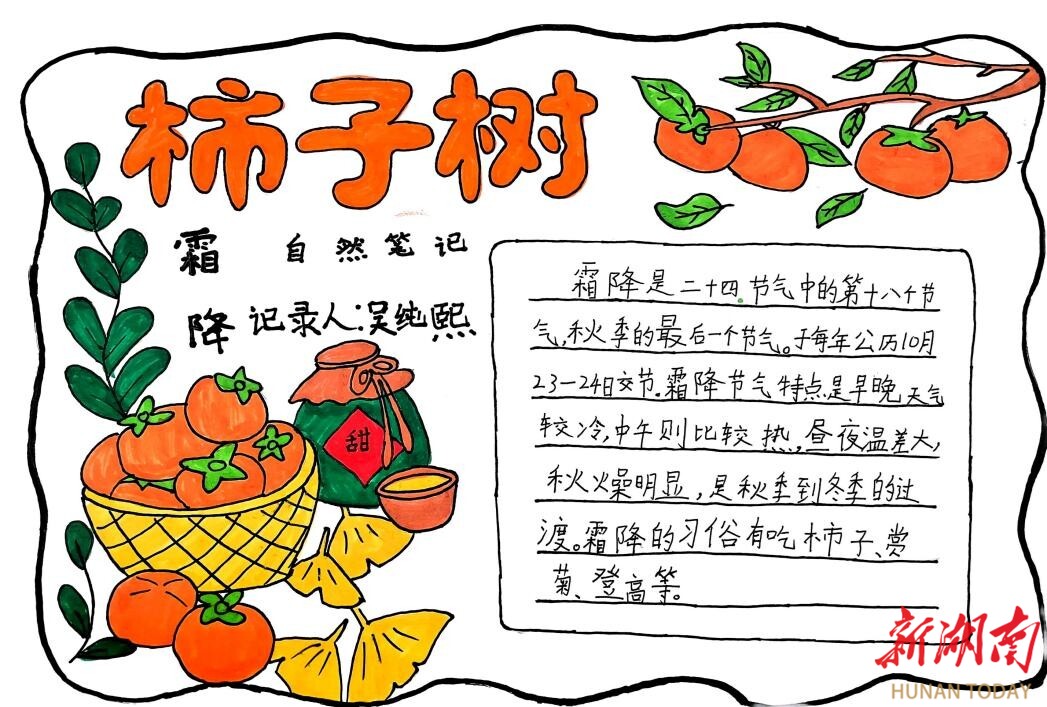 柿子树
霜降
自然笔记
记录人:吴纯熙
甜
霜降是二十四节气中的第十八个节
气,秋季的最后一个节气。于每年公历10月
23—24日交节。霜降节气特点是早晚天气
较冷,中午则比较热,昼夜温差大,
秋燥明显,是秋季到冬季的过
渡。霜降的习俗有吃柿子、赏
菊、登高等。
新湖南
HUNAN TODAY